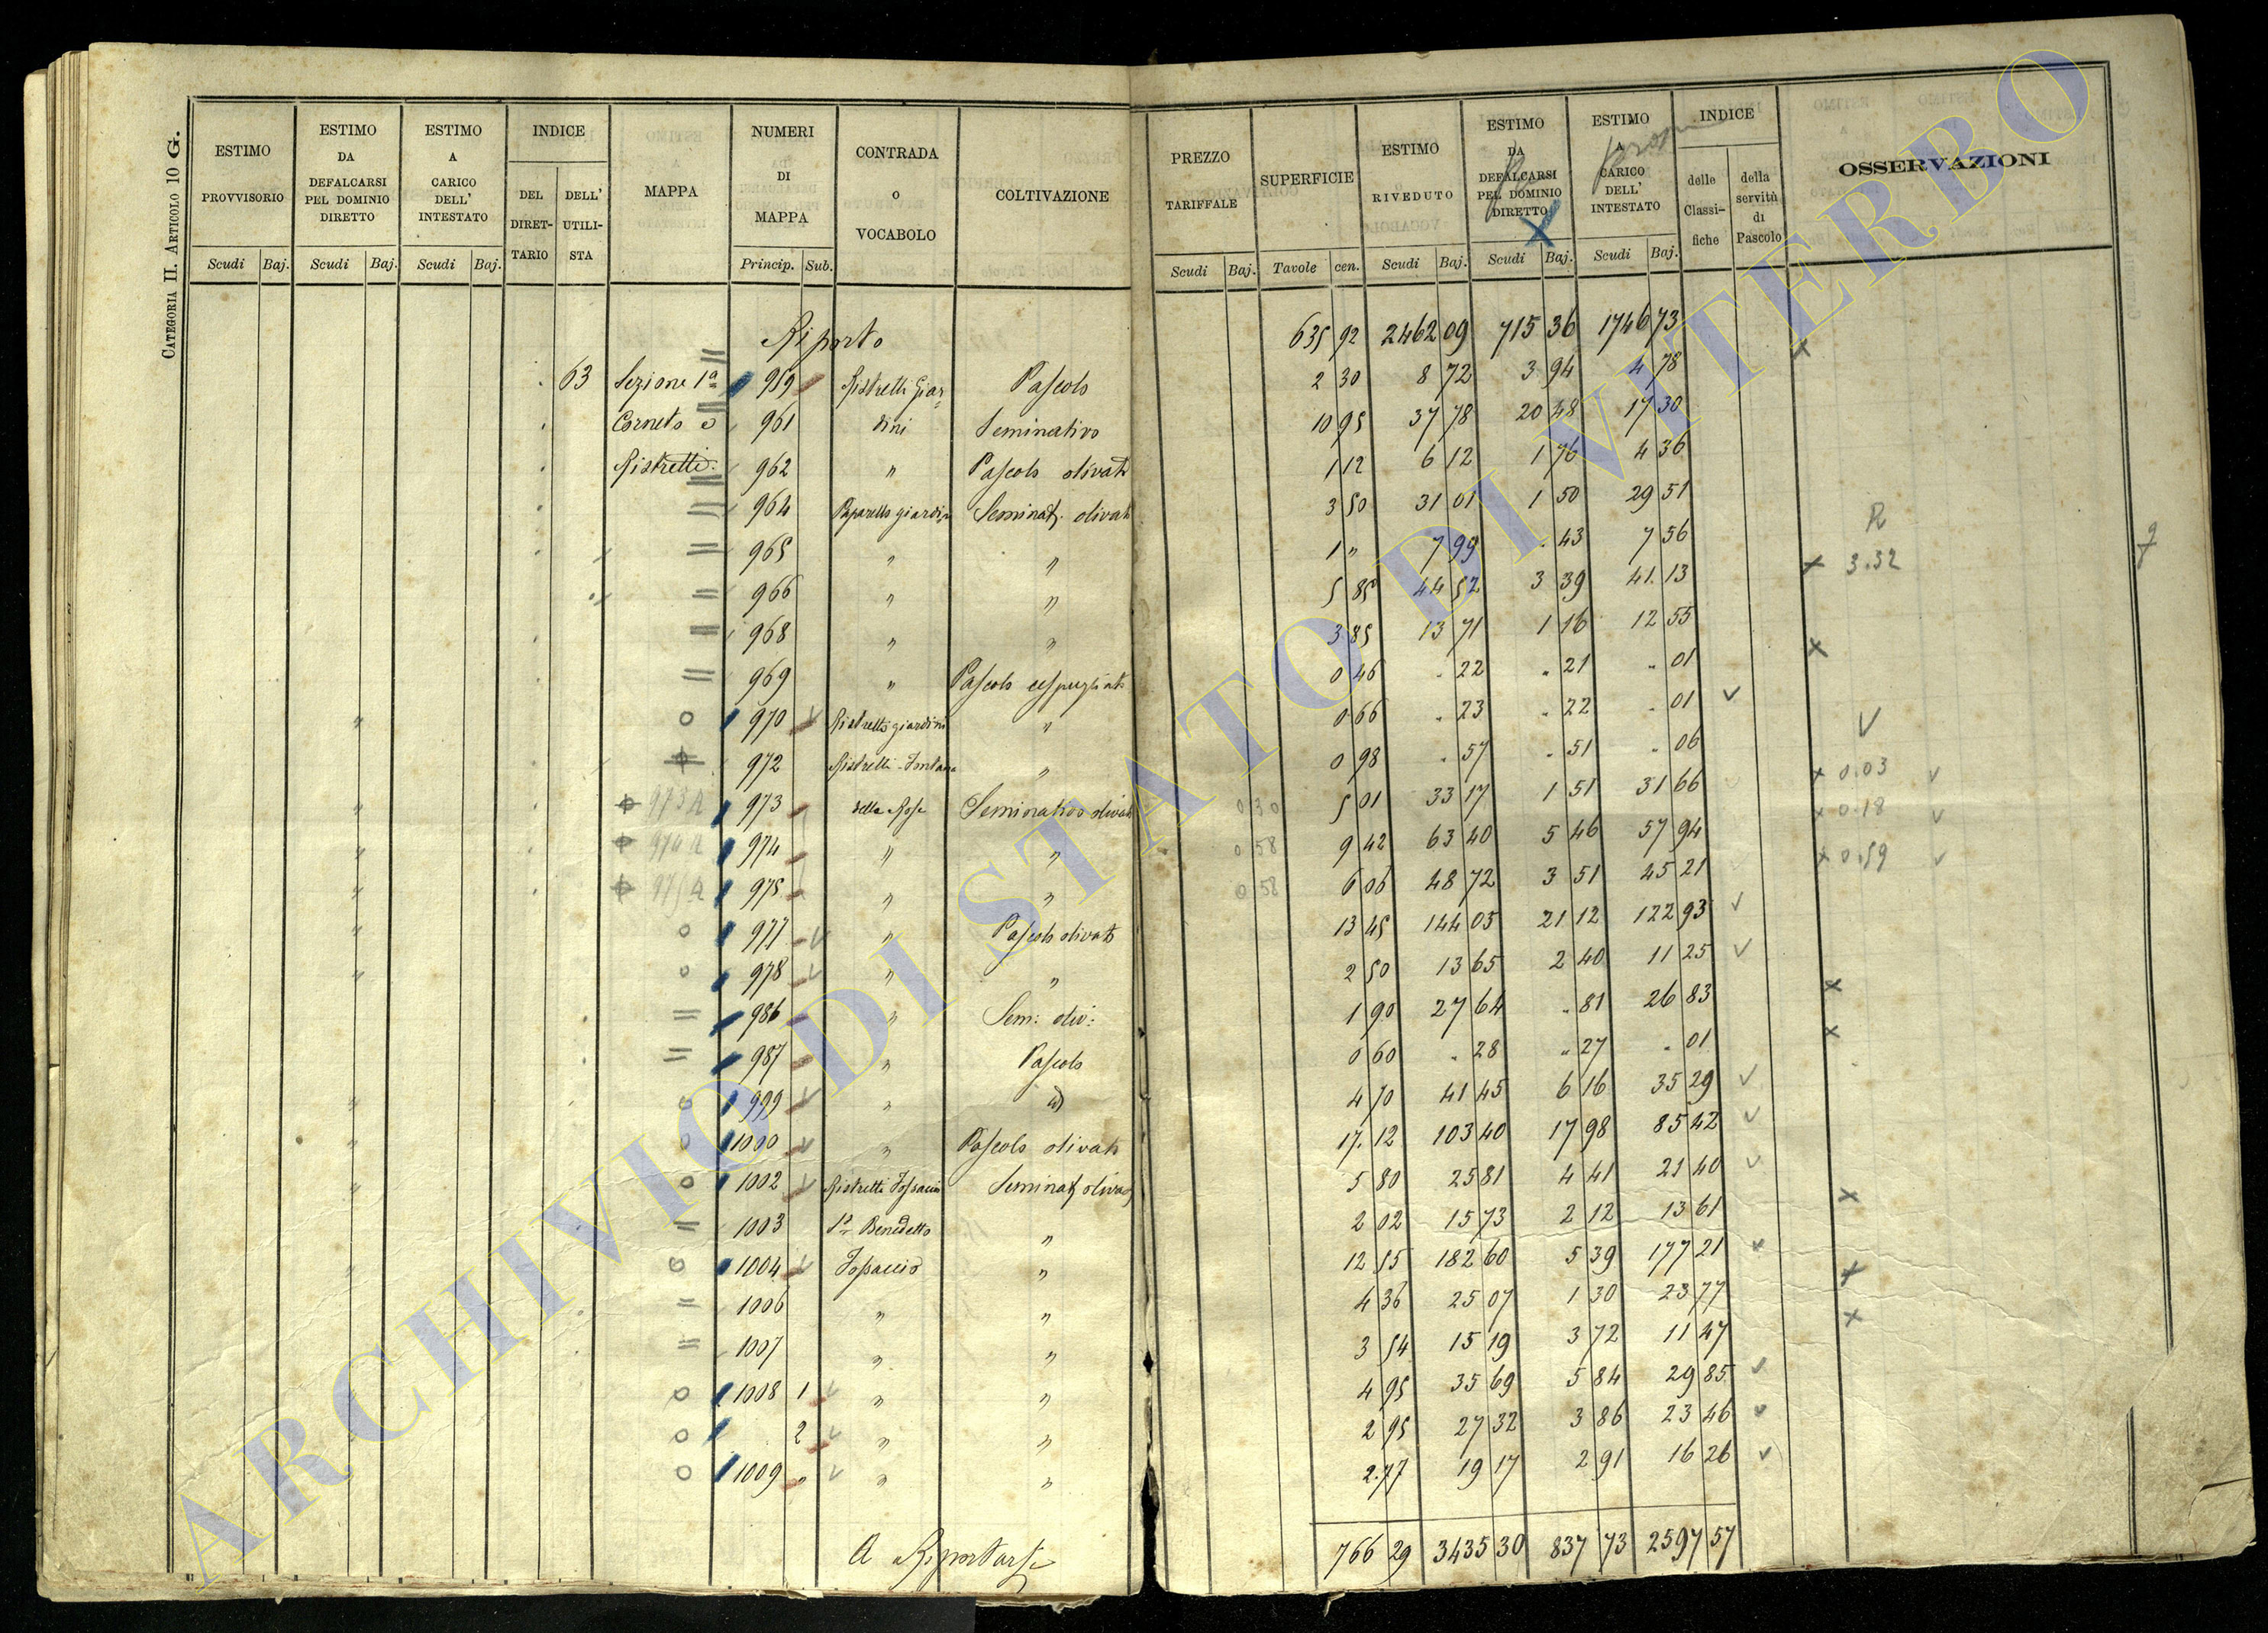 CATEGORIA II. ARTICOLO 10 G.
ESTIMO PROVVISORIO | ESTIMO DA DEFALCARSI PEL DOMINIO DIRETTO | ESTIMO A CARICO DELL' INTESTATO | INDICE DEL DIRET-TARIO | DELL' UTILI-STA | MAPPA | NUMERI DI MAPPA | CONTRADA O VOCABOLO | COLTIVAZIONE | PREZZO TARIFFALE | SUPERFICIE | ESTIMO RIVEDUTO | ESTIMO DA DEFALCARSI PEL DOMINIO DIRETTO | ESTIMO A CARICO DELL' INTESTATO | INDICE delle Classi-fiche | della servitù di Pascolo | OSSERVAZIONI
Scudi Baj. | Scudi Baj. | Scudi Baj. | Princip. Sub. | Scudi Baj. | Tavole cen. | Scudi Baj. | Scudi Baj. | Scudi Baj.
Riporto 635 92 2462 09 715 36 1746 73
63 Sezione 1ª 959 Ristretti Giar= Pascolo 2 30 8 72 3 94 4 78
Corneto e 961 dini Seminativo 10 95 37 78 20 48 17 30
Ristretti: 962 " Pascolo olivato 1 12 6 12 1 76 4 36
964 Paparello giardin Seminat. olivato 3 50 31 01 1 50 29 51
965 " " 1 " 7 99 . 43 7 56
966 " " 5 85 44 52 3 39 41. 13 x 3.32
968 " " 3 85 13 71 1 16 12 55
969 " Pascolo cespugliato 0 46 . 22 . 21 . 01
970 Ristretti giardini " 0 66 . 23 . 22 . 01
972 Ristretti Fontana " 0 98 . 57 . 51 . 06
973 A 973 della Rose Seminativo olivato 0 30 5 01 33 17 1 51 31 66 x 0.03
974 A 974 " " 0 58 9 42 63 40 5 46 57 94 x 0.18
975 A 975 " " 0 58 6 06 48 72 3 51 45 21 x 0.59
977 " Pascolo olivato 13 45 144 05 21 12 122 93
978 " " 2 50 13 65 2 40 11 25
986 " Sem: oliv: 1 90 27 64 . 81 26 83
987 " Pascolo 0 60 . 28 " 27 . 01
999 " id 4 70 41 45 6 16 35 29
1000 " Pascolo olivato 17. 12 103 40 17 98 85 42
1002 Ristretti Fossaccio Seminat olivato 5 80 25 81 4 41 21 40
1003 S. Benedetto " 2 02 15 73 2 12 13 61
1004 Fossaccio " 12 55 182 60 5 39 177 21
1006 " " 4 36 25 07 1 30 23 77
1007 " " 3 54 15 19 3 72 11 47
1008 1 " " 4 95 35 69 5 84 29 85
2 " " 2 95 27 32 3 86 23 46
1009 " " " 2.77 19 17 2 91 16 26
A Riportarsi 766 29 3435 30 837 73 2597 57
ARCHIVIO DI STATO DI VITERBO